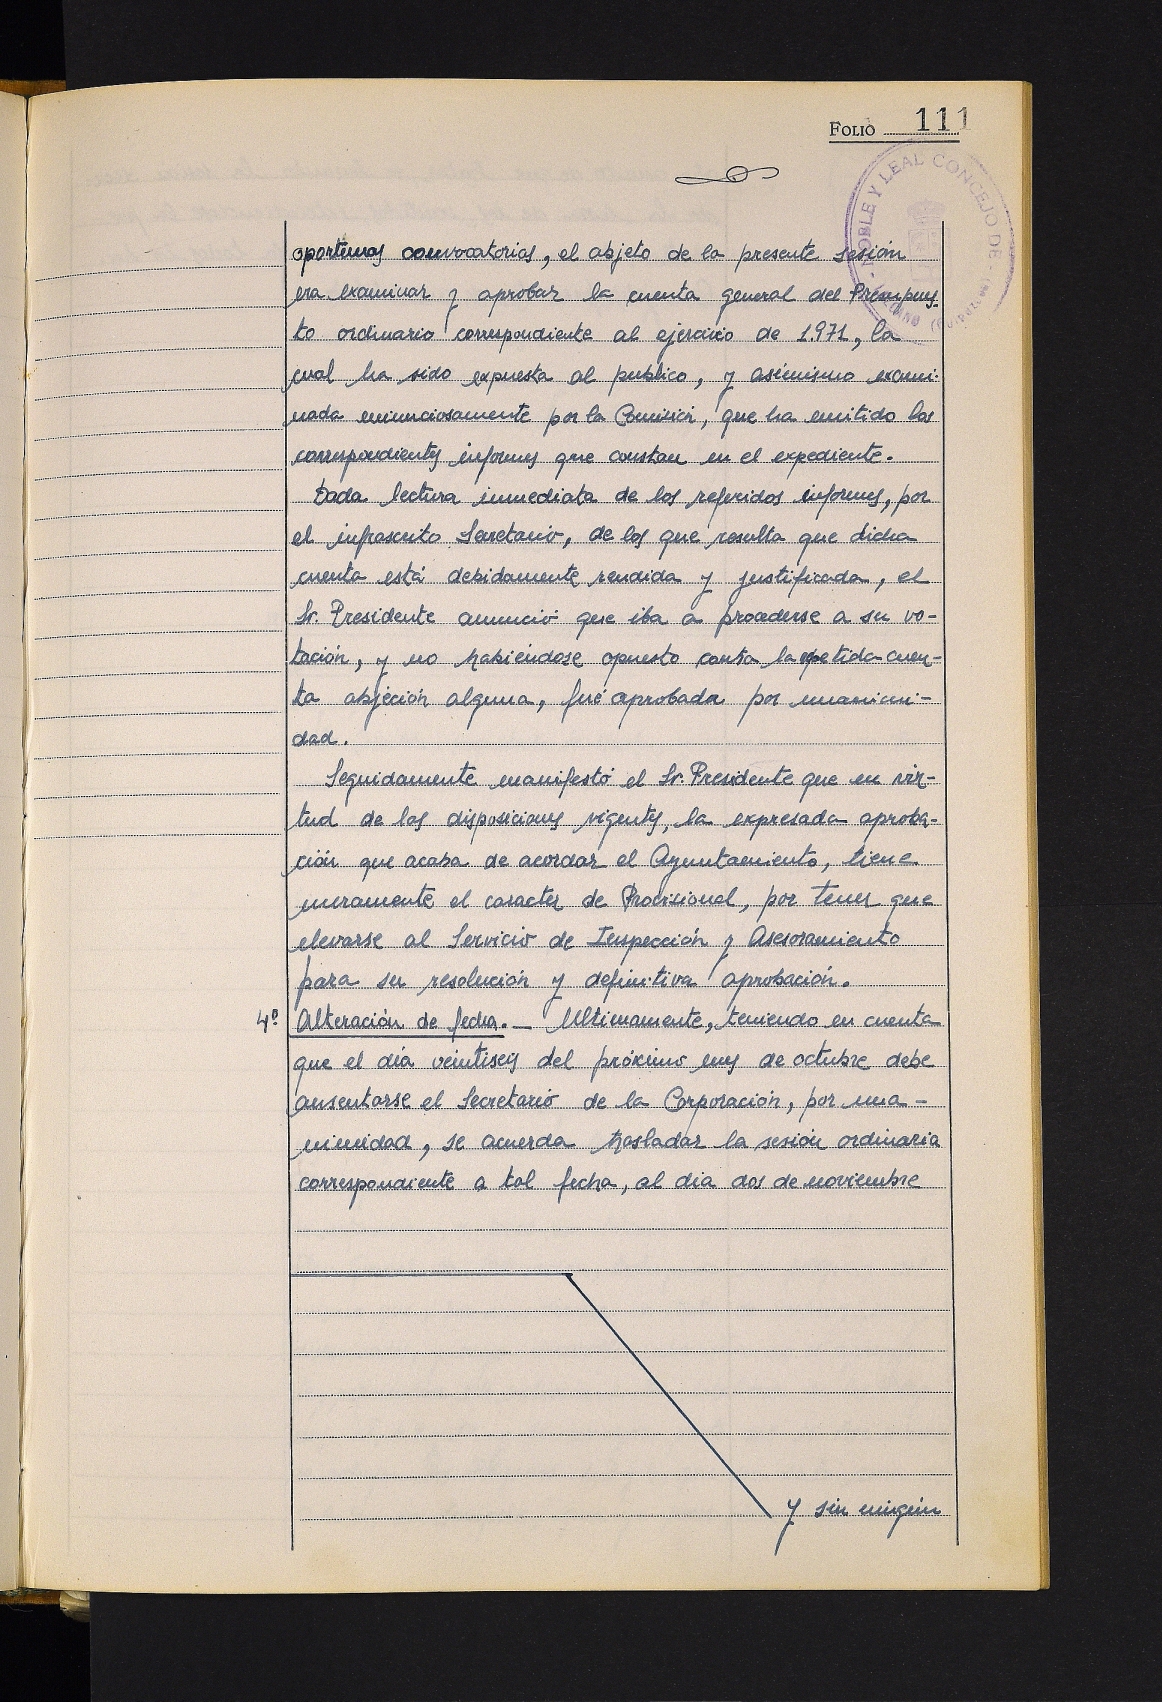 FOLIO 111
NOBLE Y LEAL CONCEJO DE
oportunas convocatorias, el objeto de la presente sesión
era examinar y aprobar la cuenta general del Presupues-
to ordinario correspondiente al ejercicio de 1.971, la
cual ha sido expuesta al publico, y asimismo exami-
nada minunciosamente por la Comisión, que ha emitido los
correspondientes informes que constan en el expediente.
Dada lectura inmediata de los referidos informes, por
el infrascrito Secretario, de los que resulta que dicha
cuenta está debidamente rendida y justificada, el
Sr. Presidente anunció que iba a procederse a su vo-
tación, y no habiéndose opuesto contra la repetida cuen-
ta objeción alguna, fué aprobada por unanimi-
dad.
Seguidamente manifestó el Sr. Presidente que en vir-
tud de las disposiciones vigentes, la expresada aproba-
ción que acaba de acordar el Ayuntamiento, tiene
meramente el caracter de Provisional, por tener que
elevarse al Servicio de Inspección y Asesoramiento
para su resolución y definitiva aprobación.
4º Alteración de fecha.- Ultimamente, teniendo en cuenta
que el día veintiseis del próximo mes de octubre debe
ausentarse el Secretario de la Corporación, por una-
nimidad, se acuerda trasladar la sesión ordinaria
correspondiente a tal fecha, al dia dos de noviembre
y sin ningún